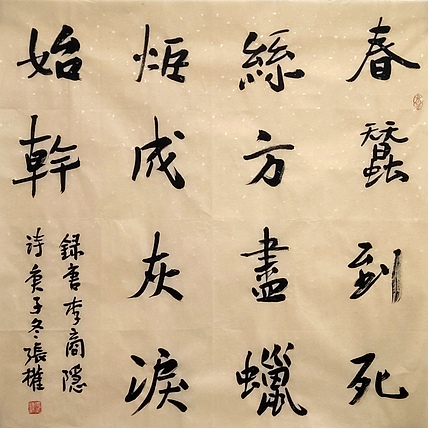 春蠶到死
絲方盡蠟
炬成灰淚
始幹
錄唐李商隱
詩庚子冬張